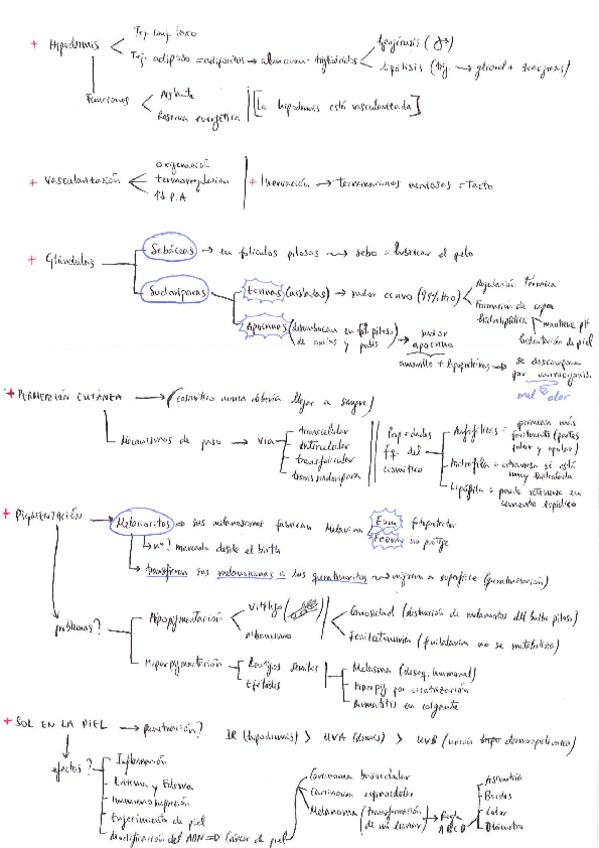 + Hipodermis
Tej. conj. laxo
Tej. adiposo = adipocitos → almacenan triglicéridos
lipogénesis
lipólisis (trig. → glicerol +
Funciones
Aislante
Reserva energética
[La hipodermis está vascularizada]
+ Vascularización
oxigenación
termorregulación
↑↓ P.A
+ Inervación → terminaciones nerviosas = tacto
+ Glándulas
Sebáceas → en folículos pilosos → sebo = lubricar el pelo
Sudoríparas
Ecrinas (aisladas) → sudor ecrino (99% H2O)
Regulación térmica
Formación de capa hidrolipídica
mantiene pH
hidratación de piel
Apocrinas (desembocan en fol. piloso) de axilas y pubis
→ sudor apocrino
amarillo + lipoproteínas → se descompone por microorganis.
mal olor
+ PERMEACIÓN CUTÁNEA → (cosmético nunca debería llegar a sangre)
Mecanismos de paso → vía
transcelular
intercelular
transfolicular
transsudorípara
Propiedades fq. del cosmético
Anfifílicos = permean más fácilmente (partes polar y apolar)
Hidrófila = atraviesa si está muy hidratada
Lipófila = puede retenerse en cemento lipídico
+ PIGMENTACIÓN → Melanocitos → sus melanosomas fabrican Melanina
Eum fotoprotector
Feom no protege
→ nº marcado desde el birth
→ transfieren sus melanosomas a los queratinocitos → migran a superficie (queratinización)
problemas?
Hipopigmentación
Vitíligo
albinismo
Canosidad (disminución de melanocitos del bulbo piloso)
Fenilcetonuria (fenilalanina no se metaboliza)
Hiperpigmentación
Lentigos seniles
Efélides
Melasma (deseq. hormonal)
Hiperpig por cicatrización
Dermatitis en colgante
+ SOL EN LA PIEL → penetración? IR (hipodermis) > UVA (dermis) > UVB (unión dermoepidérmica)
efectos?
Inflamación
Eritema y Edema
Inmunosupresión
Envejecimiento de piel
Modificación del ADN => Cáncer de piel
Carcinoma basocelular
Carcinoma espinocelular
Melanoma (transformación de un lunar) → Regla ABCD
Asimetría
Bordes
Color
Diámetro